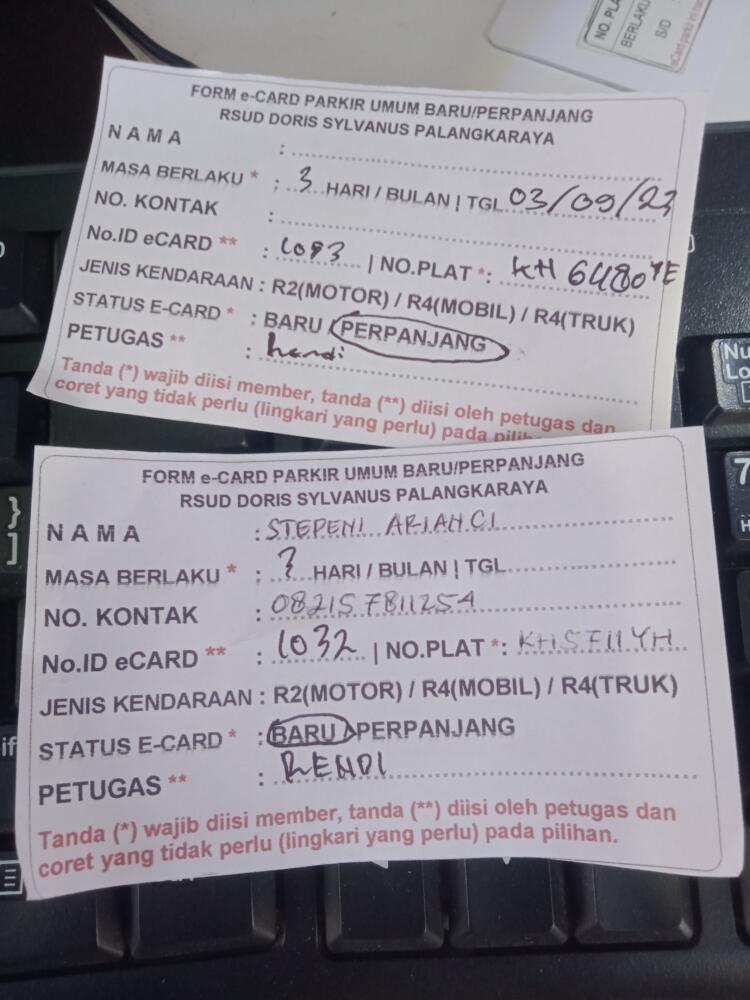 NO. PLA
BERLAKU
S/D
FORM e-CARD PARKIR UMUM BARU/PERPANJANG
RSUD DORIS SYLVANUS PALANGKARAYA
NAMA :
MASA BERLAKU * : 3 HARI / BULAN | TGL 03/09/23
NO. KONTAK :
No.ID eCARD ** : 1093 | NO.PLAT *: KH 6480 YE
JENIS KENDARAAN : R2(MOTOR) / R4(MOBIL) / R4(TRUK)
STATUS E-CARD * : BARU / PERPANJANG
PETUGAS ** : hendi
Tanda (*) wajib diisi member, tanda (**) diisi oleh petugas dan
coret yang tidak perlu (lingkari yang perlu) pada pilihan.
FORM e-CARD PARKIR UMUM BARU/PERPANJANG
RSUD DORIS SYLVANUS PALANGKARAYA
NAMA : STEPENI ARIANCI
MASA BERLAKU * : 3 HARI / BULAN | TGL
NO. KONTAK : 082157811254
No.ID eCARD ** : 1032 | NO.PLAT *: KH5711YH
JENIS KENDARAAN : R2(MOTOR) / R4(MOBIL) / R4(TRUK)
STATUS E-CARD * : BARU / PERPANJANG
PETUGAS ** : RENDI
Tanda (*) wajib diisi member, tanda (**) diisi oleh petugas dan
coret yang tidak perlu (lingkari yang perlu) pada pilihan.